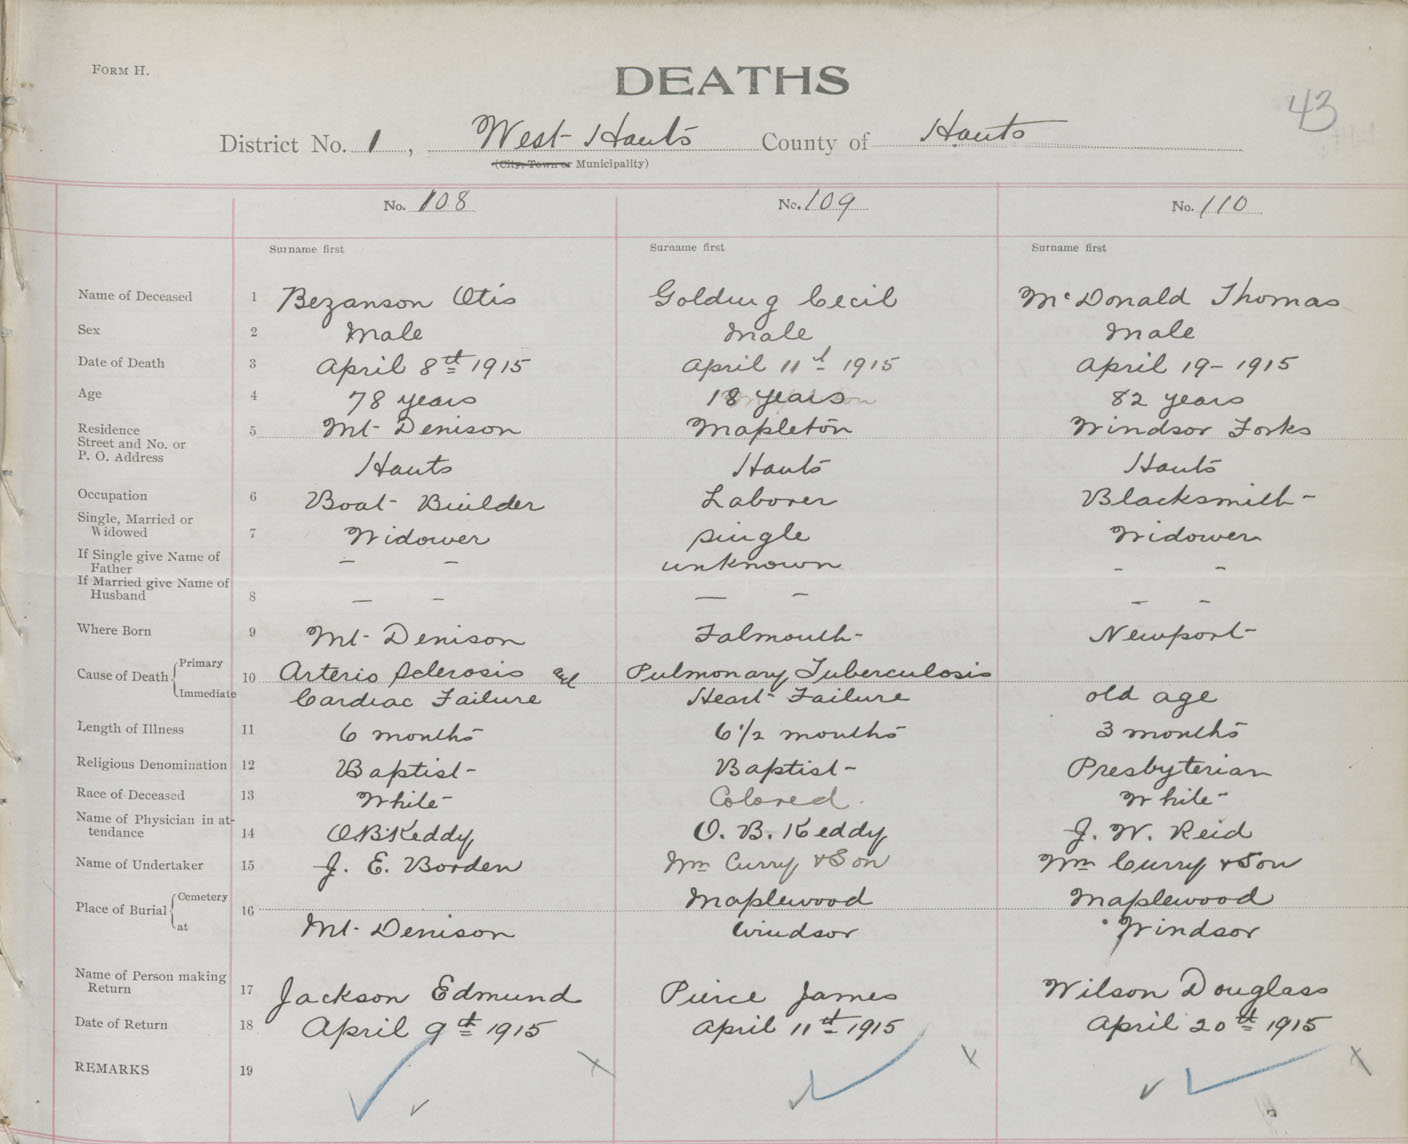 FORM H.
DEATHS
43
District No. 1, West Hants County of Hants
(City, Town or Municipality)
No. 108 No. 109 No. 110
Surname first Surname first Surname first
Name of Deceased 1 Bezanson Otis Golding Cecil McDonald Thomas
Sex 2 Male Male Male
Date of Death 3 April 8th 1915 April 11th 1915 April 19 - 1915
Age 4 78 years 18 years 82 years
Residence 5 Mt- Denison Mapleton Windsor Forks
Street and No. or
P. O. Address Hants Hants Hants
Occupation 6 Boat- Builder Laborer Blacksmith-
Single, Married or
Widowed 7 Widower single Widower
If Single give Name of
Father — — unknown - -
If Married give Name of
Husband 8 — — — - - -
Where Born 9 Mt- Denison Falmouth- Newport-
Cause of Death Primary 10 Arterio Sclerosis and Pulmonary Tuberculosis
Immediate Cardiac Failure Heart Failure old age
Length of Illness 11 6 months 6 1/2 months 3 months
Religious Denomination 12 Baptist- Baptist- Presbyterian
Race of Deceased 13 White- Colored. White-
Name of Physician in at-
tendance 14 O B Keddy O. B. Keddy J. W. Reid
Name of Undertaker 15 J. E. Borden Wm Curry & Son Wm Curry & Son
Place of Burial Cemetery 16 Maplewood Maplewood
at Mt- Denison Windsor Windsor
Name of Person making
Return 17 Jackson Edmund Pierce James Wilson Douglass
Date of Return 18 April 9th 1915 April 11th 1915 April 20th 1915
REMARKS 19